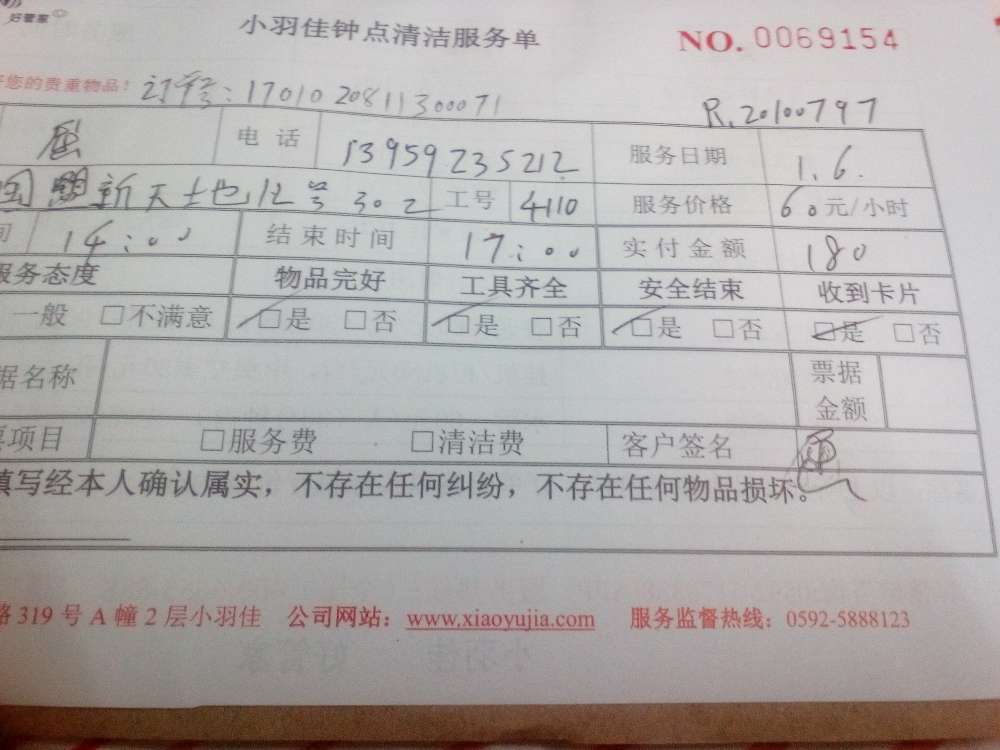 好管家
小羽佳钟点清洁服务单 NO. 0069154
您的贵重物品! 订单号: 1701020811300071
R.20100797
屈 电话 13959235212 服务日期 1.6.
国贸新天地12号302 工号 4110 服务价格 60元/小时
间 14:00 结束时间 17:00 实付金额 180
服务态度 物品完好 工具齐全 安全结束 收到卡片
一般 □不满意 □是 □否 □是 □否 □是 □否 □是 □否
据名称 票据金额
票项目 □服务费 □清洁费 客户签名
填写经本人确认属实,不存在任何纠纷,不存在任何物品损坏。
路 319 号 A 幢 2 层小羽佳 公司网站: www.xiaoyujia.com 服务监督热线: 0592-5888123